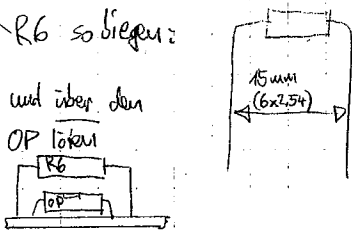 R6 so biegen:
15 mm
(6x2,54)
und über den
OP löten
R6
OP